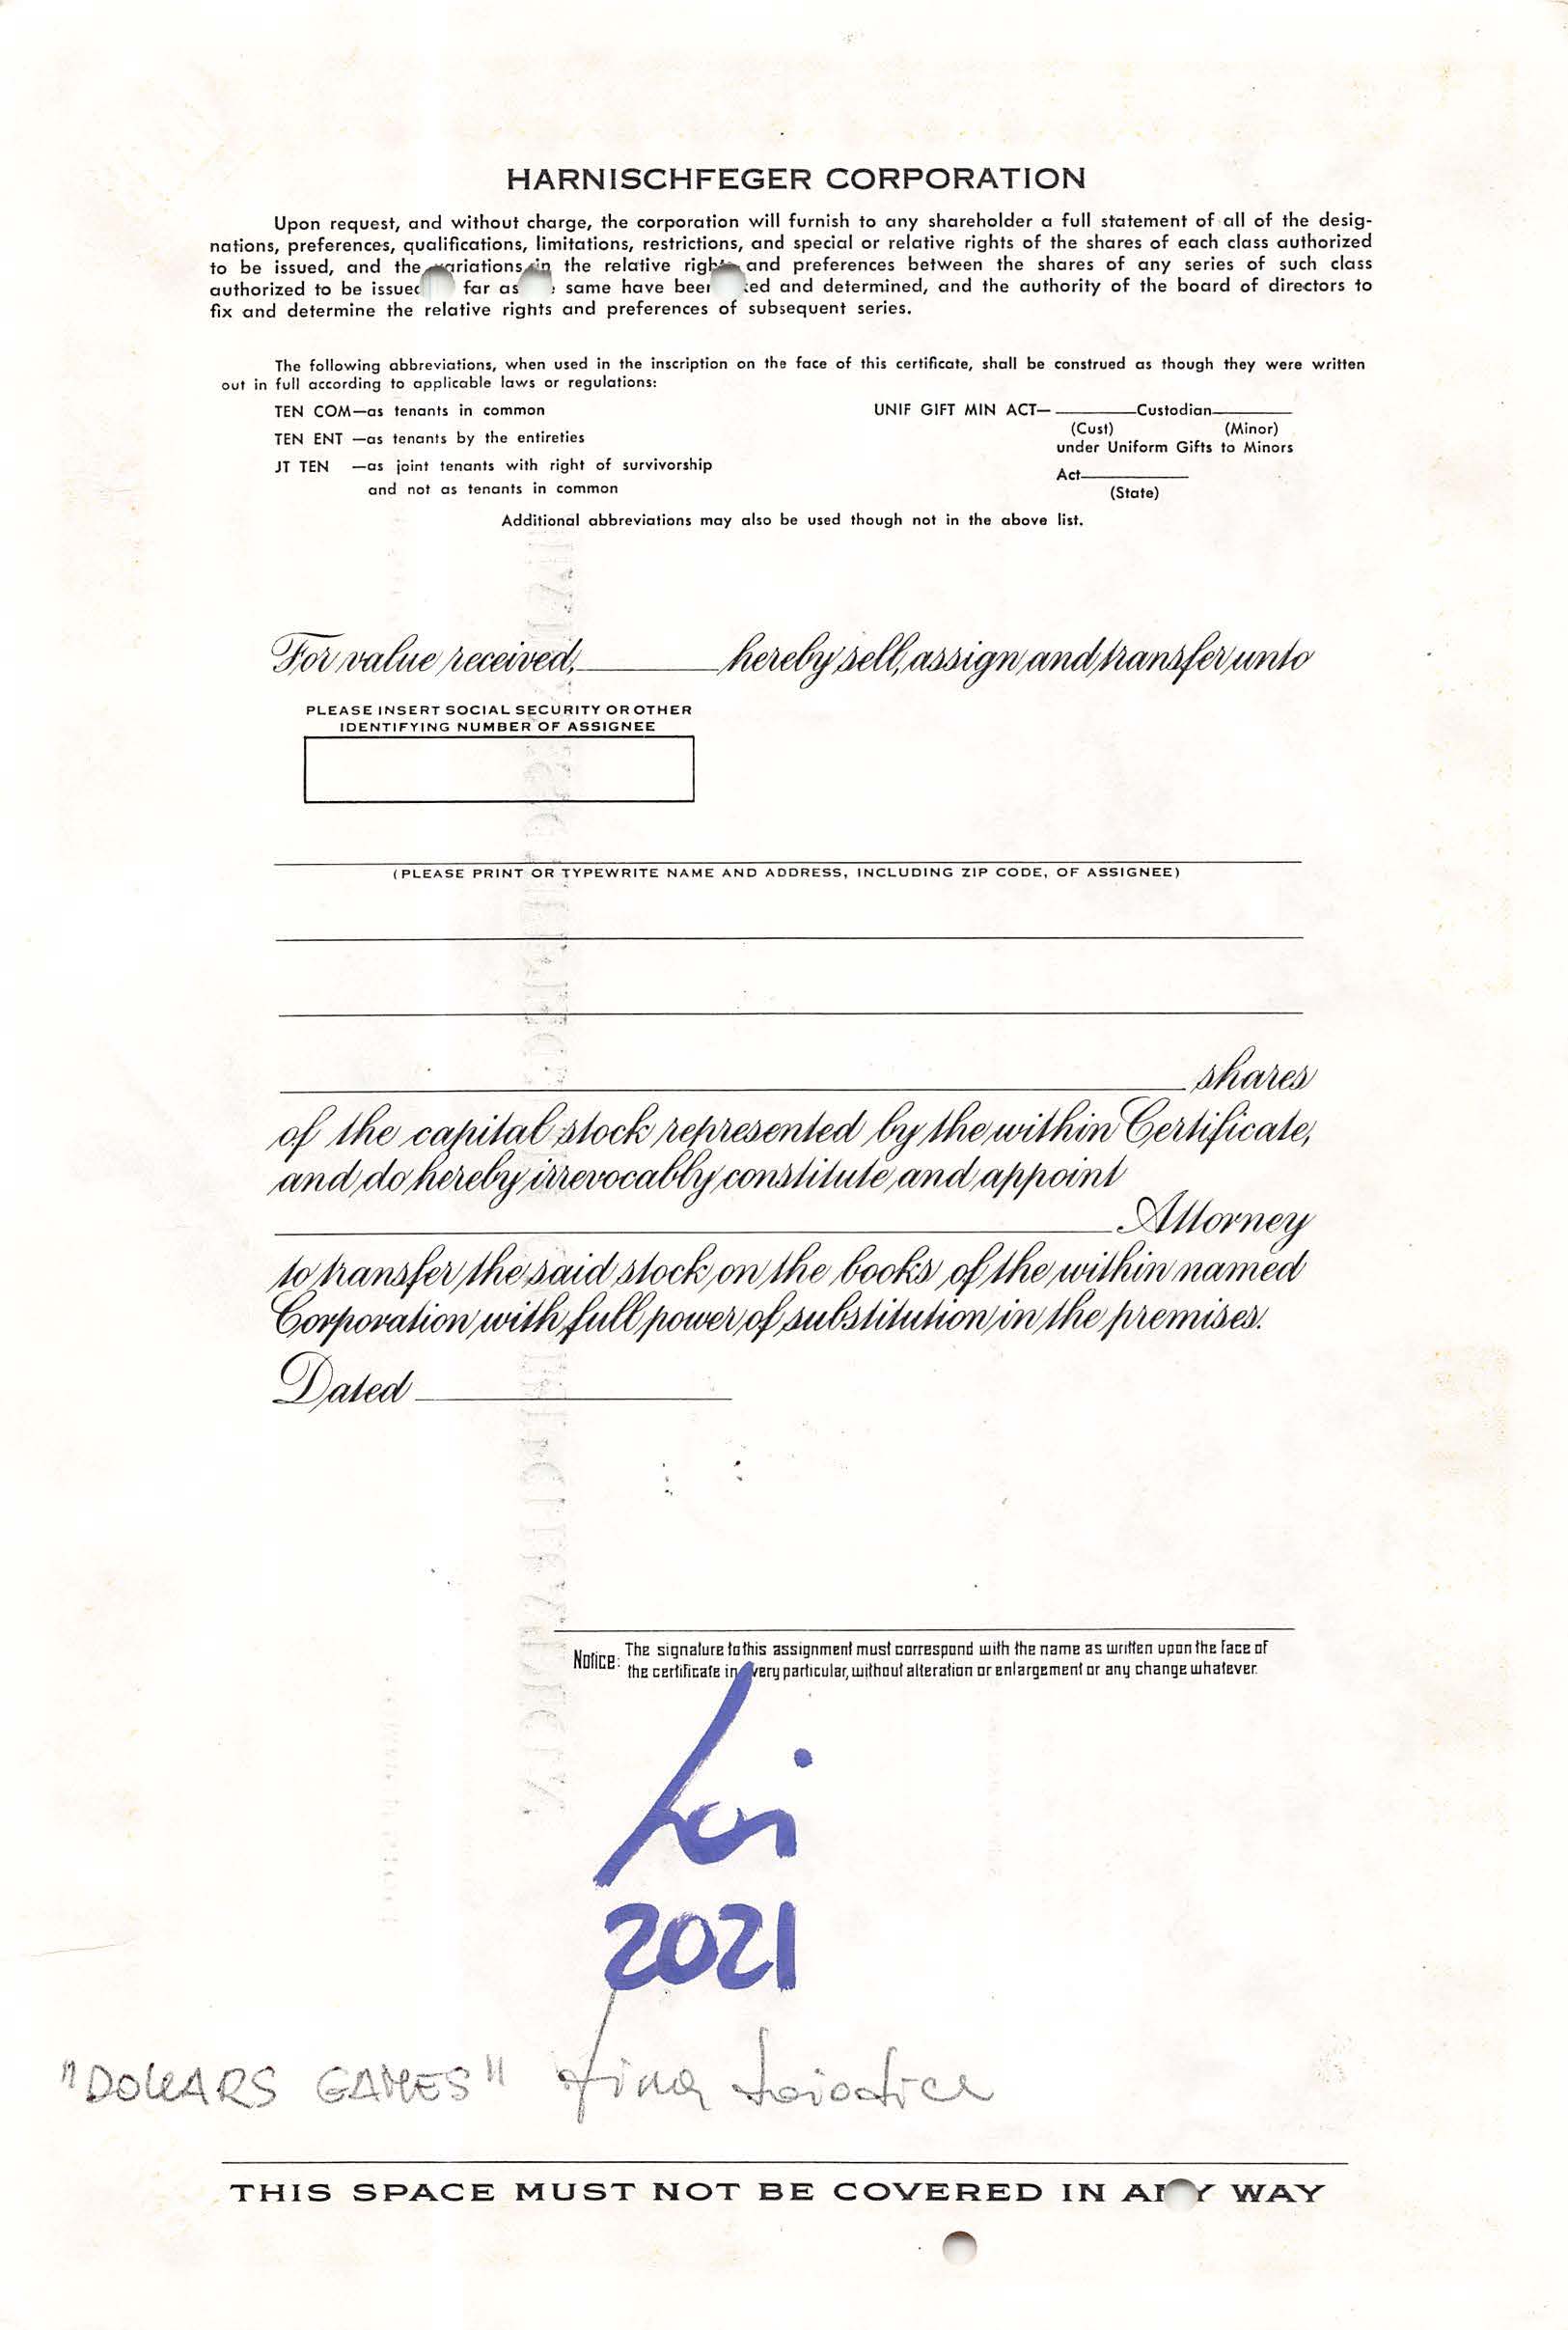 HARNISCHFEGER CORPORATION
Upon request, and without charge, the corporation will furnish to any shareholder a full statement of all of the desig-
nations, preferences, qualifications, limitations, restrictions, and special or relative rights of the shares of each class authorized
to be issued, and the variations in the relative rights and preferences between the shares of any series of such class
authorized to be issued far as same have been and determined, and the authority of the board of directors to
fix and determine the relative rights and preferences of subsequent series.
The following abbreviations, when used in the inscription on the face of this certificate, shall be construed as though they were written
out in full according to applicable laws or regulations:
TEN COM—as tenants in common
TEN ENT —as tenants by the entireties
JT TEN —as joint tenants with right of survivorship
and not as tenants in common
UNIF GIFT MIN ACT— Custodian
(Cust) (Minor)
under Uniform Gifts to Minors
Act
(State)
Additional abbreviations may also be used though not in the above list.
For value received, hereby sell, assign and transfer unto
PLEASE INSERT SOCIAL SECURITY OR OTHER
IDENTIFYING NUMBER OF ASSIGNEE
(PLEASE PRINT OR TYPEWRITE NAME AND ADDRESS, INCLUDING ZIP CODE, OF ASSIGNEE)
shares
of the capital stock represented by the within Certificate,
and do hereby irrevocably constitute and appoint
Attorney
to transfer the said stock on the books of the within named
Corporation with full power of substitution in the premises.
Dated
Notice: The signature to this assignment must correspond with the name as written upon the face of
the certificate in every particular, without alteration or enlargement or any change whatever.
Loi
2021
"DOLLARS GAMES"
THIS SPACE MUST NOT BE COVERED IN ANY WAY